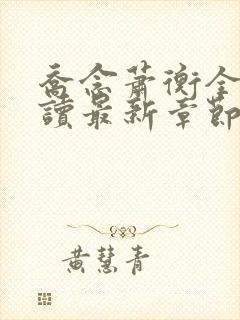 喬念蕭衡全
讀最新章節
黃慧青